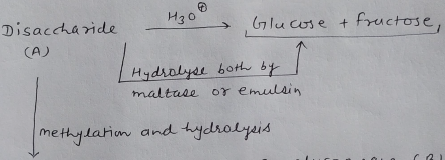 Disaccharide H3O⊕ Glucose + fructose
(A)
Hydrolyse both by
maltase or emulsin
methylation and hydrolysis